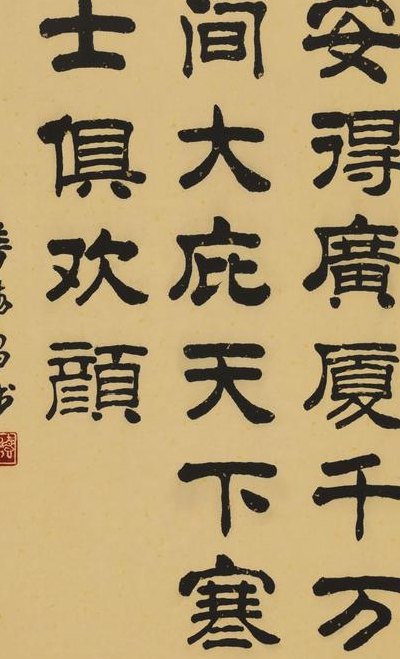 安得廣厦千万
间大庇天下寒
士俱欢颜